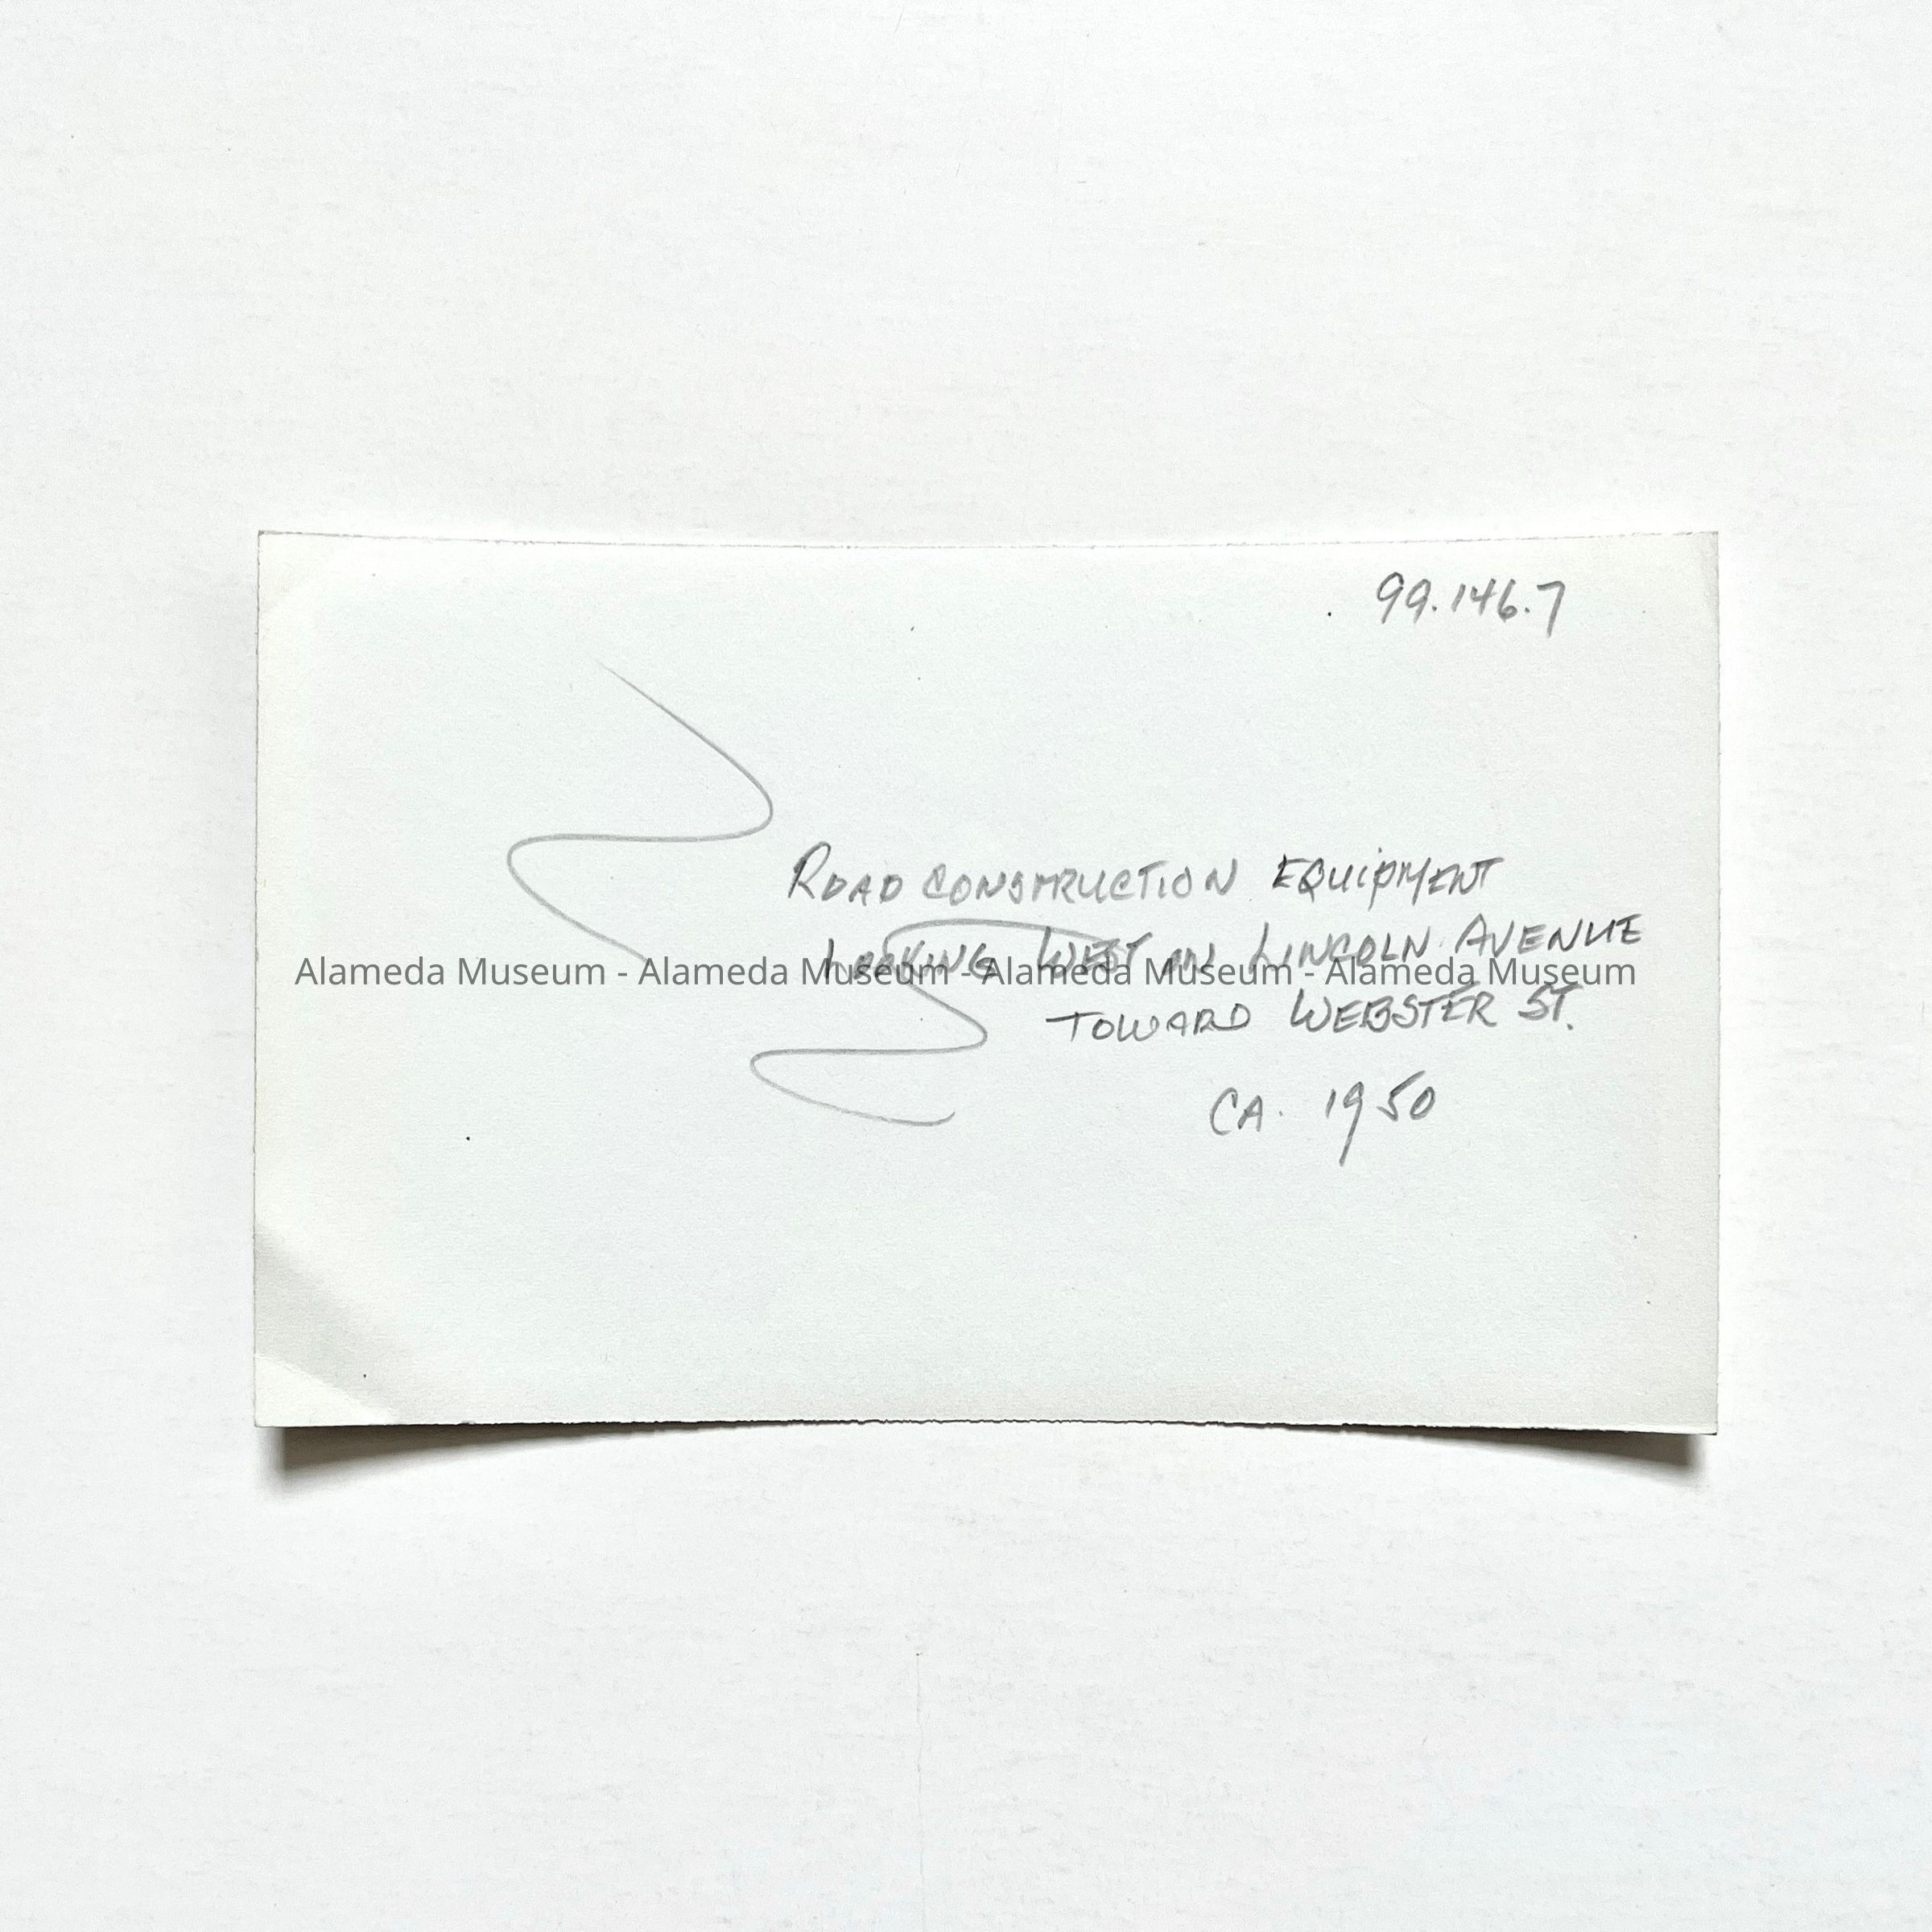 99.146.7
ROAD CONSTRUCTION EQUIPMENT
LOOKING WEST ON LINCOLN AVENUE
Alameda Museum - Alameda Museum - Alameda Museum - Alameda Museum
TOWARD WEBSTER ST.
CA. 1950